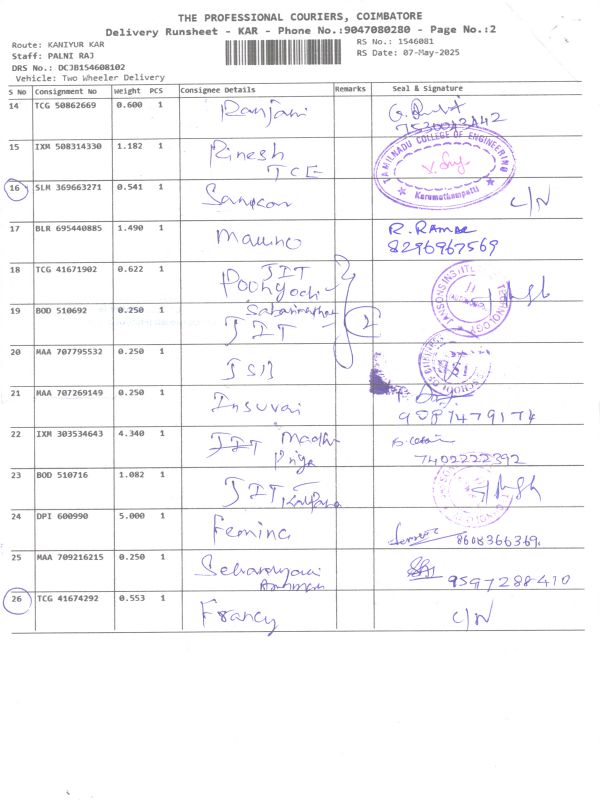 THE PROFESSIONAL COURIERS, COIMBATORE
Delivery Runsheet - KAR - Phone No.:9047080280 - Page No.:2
Route: KANIYUR KAR
RS No.: 1546081
Staff: PALNI RAJ
RS Date: 07-May-2025
DRS No.: DCJB154608102
Vehicle: Two Wheeler Delivery
S No Consignment No Weight PCS Consignee Details Remarks Seal & Signature
14 TCG 50862669 0.600 1 Ranjani
15 IXM 508314330 1.182 1 Rinesh
TCE
TAMILNADU COLLEGE OF ENGINEERING
Karumathampatti
16 SLM 369663271 0.541 1 C/N
17 BLR 695440885 1.490 1 R. Raman
8296967569
18 TCG 41671902 0.622 1 JIT
19 BOD 510692 0.250 1
JIT 2
20 MAA 707795532 0.250 1 JSB
21 MAA 707269149 0.250 1 Insuvai
22 IXM 303534643 4.340 1 JIT Madhu
Priya
7402222392
23 BOD 510716 1.082 1 JIT Kalpana
24 DPI 600990 5.000 1 Femina
8608366369.
25 MAA 709216215 0.250 1
9597288410
26 TCG 41674292 0.553 1 Francy C/N